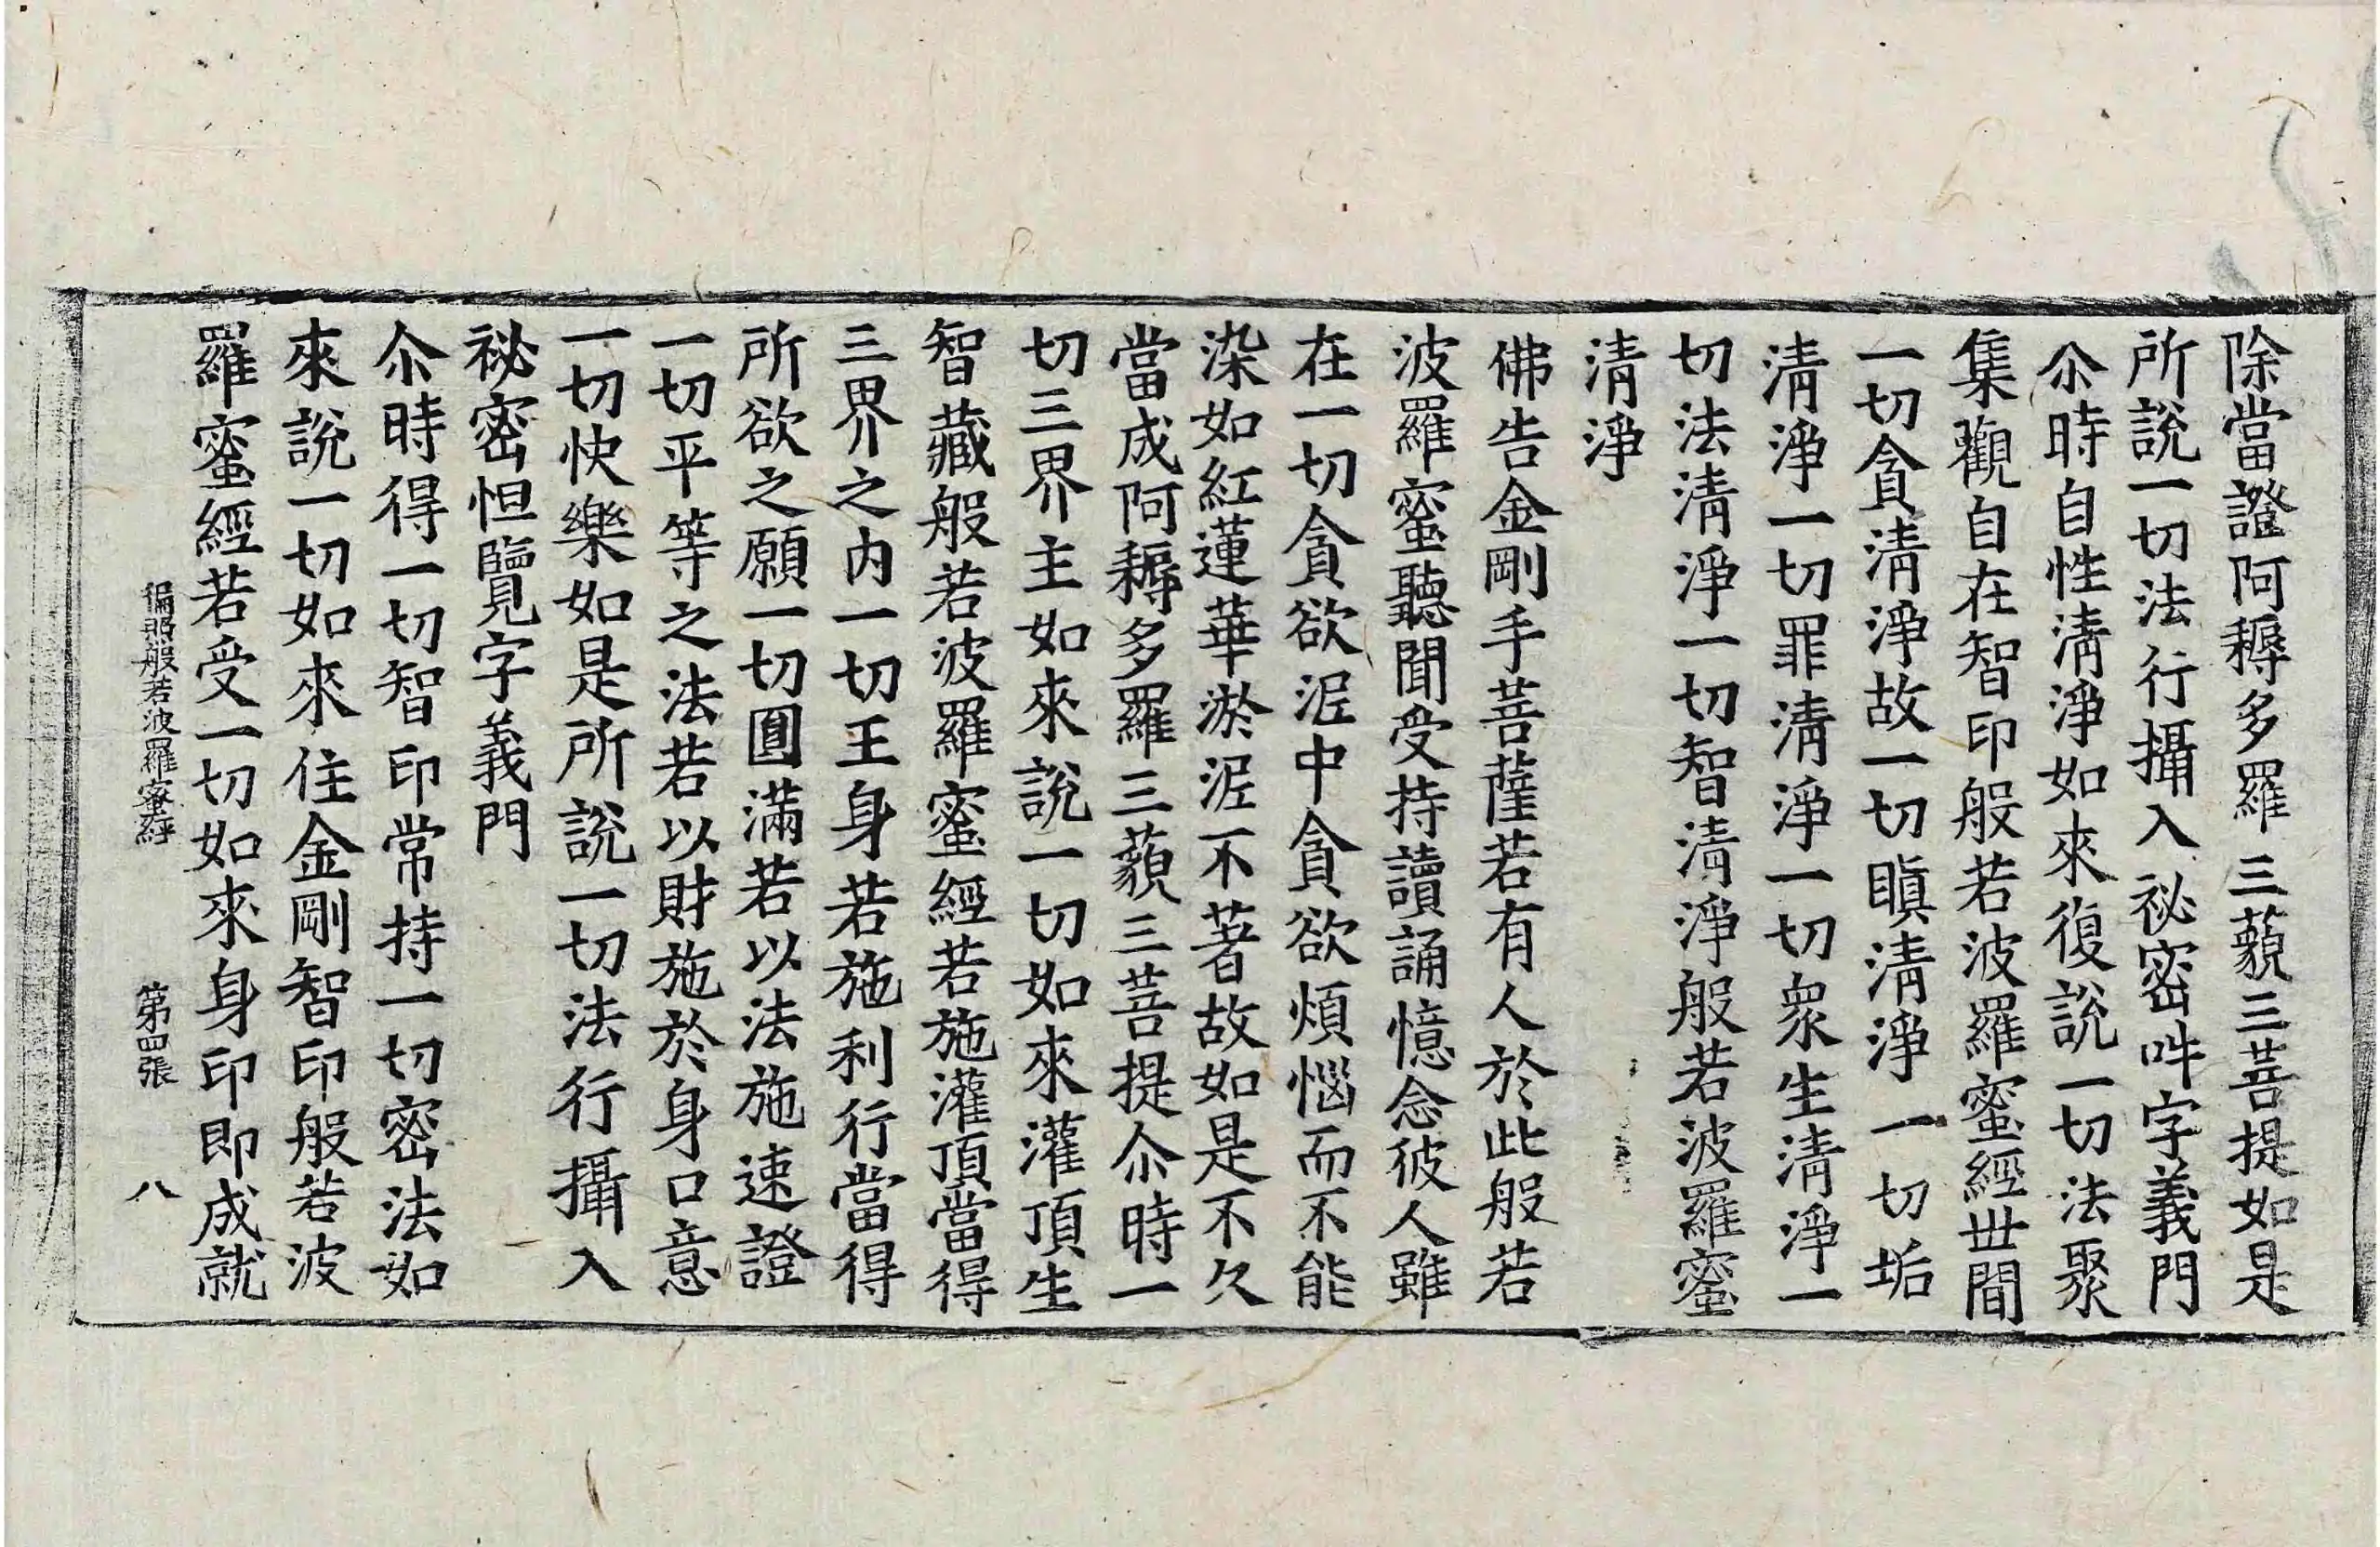 除當證阿耨多羅三藐三菩提如是
所說一切法行攝入祕密吽字義門
尒時自性清淨如來復說一切法聚
集觀自在智印般若波羅蜜經世間
一切貪清淨故一切瞋清淨一切垢
清淨一切罪清淨一切衆生清淨一
切法清淨一切智清淨般若波羅蜜
清淨
佛告金剛手菩薩若有人於此般若
波羅蜜聽聞受持讀誦憶念彼人雖
在一切貪欲泥中貪欲煩惱而不能
染如紅蓮華淤泥不著故如是不久
當成阿耨多羅三藐三菩提尒時一
切三界主如來說一切如來灌頂生
智藏般若波羅蜜經若施灌頂當得
三界之内一切王身若施利行當得
所欲之願一切圓滿若以法施速證
一切平等之法若以財施於身口意
一切快樂如是所說一切法行攝入
祕密怛覽字義門
尒時得一切智印常持一切密法如
來說一切如來住金剛智印般若波
羅蜜經若受一切如來身印即成就
徧照般若波羅蜜經 第四張 八